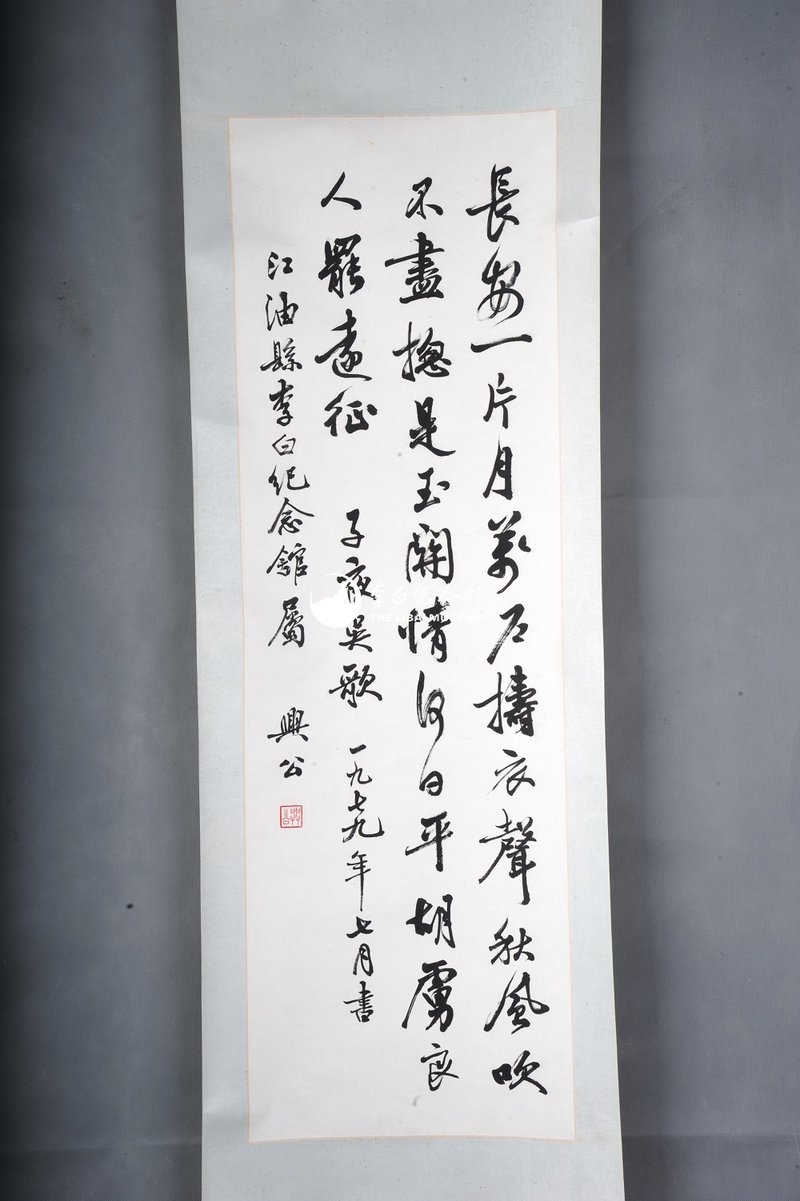 長安一片月萬户擣衣聲秋風吹
不盡摠是玉關情何日平胡虜良
人罷遠征 子夜吳歌 一九七九年七月書
江油縣李白纪念舘屬 興公
李白纪念馆
THE LIBAI MUSEUM